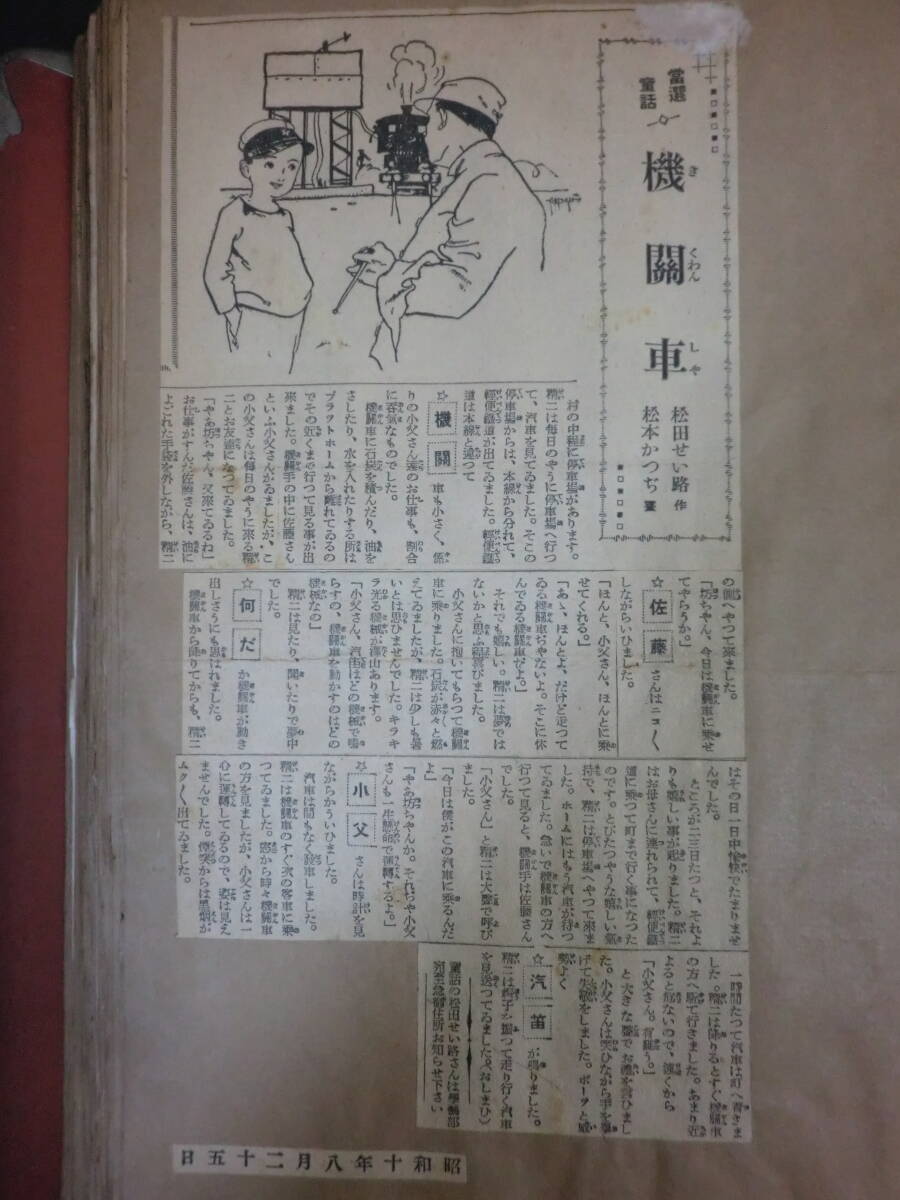 當選
童話
機關車
き くわん しや
松田せい路 作
松本かつぢ 畫
村の中程に停車場があります。
精二は毎日のやうに停車場へ行つ
て、汽車を見てゐました。そこの
停車場からは、本線から分れて、
輕便鐵道が出てゐました。輕便鐵
道は本線と違つて
☆機關 車も小さく、係
りの小父さん達のお仕事も、割合
に呑氣なものでした。
機關車に石炭を積んだり、油を
さしたり、水を入れたりする所は
プラツトホームから離れてゐるの
でその近くまで行つて見る事が出
來ました。機關手の中に佐藤さん
といふ小父さんがゐましたが、こ
の小父さんは毎日のやうに來る精
二とお友達になつてゐました。
「やあ坊ちやん、又來てゐるね」
お仕事がすんだ佐藤さんは、油に
よごれた手袋を外しながら、精二
の側へやつて來ました。
「坊ちやん、今日は機關車に乘せ
てやらうか。」
☆佐藤 さんはニコ〳〵
しながらいひました。
「ほんと、小父さん、ほんとに乘
せてくれる。」
「あゝ、ほんとよ、だけど走つて
ゐる機關車ぢやないよ。そこに休
んでゐる機關車だよ。」
それでも嬉しい。精二は夢では
ないかと思ふ程喜びました。
小父さんに抱いてもらつて機關
車に乘りました。石炭が赤々と燃
えてゐましたが、精二は少しも暑
いとは思ひませんでした。キラキ
ラ光る機械が澤山あります。
「小父さん、汽笛はどの機械で鳴
らすの、機關車を動かすのはどの
機械なの」
精二は見たり、聞いたりで夢中
でした。
☆何だ か機關車が動き
出しさうにも思はれました。
機關車から降りてからも、精二
はその日一日中愉快でたまりませ
んでした。
ところが二三日たつと、それよ
りも嬉しい事が起りました。精二
はお母さんに連れられて、輕便鐵
道に乘つて町まで行く事になつた
のです。とびたつやうな嬉しい氣
持で、精二は停車場へやつて來ま
した。ホームにはもう汽車が待つ
てゐました。急いで機關車の方へ
行つて見ると、機關手は佐藤さん
でした。
「小父さん」と精二は大聲で呼び
ました。
「今日は僕がこの汽車に乘るんだ
よ」
「やあ坊ちやんか。それぢや小父
さんも一生懸命で運轉するよ。」
☆小父 さんは時計を見
ながらかういひました。
汽車は間もなく發車しました。
精二は機關車のすぐ次の客車に乘
つてゐました。窓から時々機關車
の方を見ましたが、小父さんは一
心に運轉してゐるので、姿は見え
ませんでした。煙突からは黒煙が
ムク〳〵出てゐました。
一時間たつて汽車は町へ着きま
した。精二は降りるとすぐ機關車
の方へ駈て行きました。あまり近
よると危ないので、遠くから
「小父さん。有難う。」
と大きな聲でお禮を言ひまし
た。小父さんは笑ひながら手を擧
げて失敬をしました。ボーツと威
勢よく
☆汽笛 が鳴りました。
精二は帽子を振つて走り行く汽車
を見送つてゐました。(おしまひ)
童話の松田せい路さんは學藝部
宛至急御住所お知らせ下さい
昭和十年八月二十五日